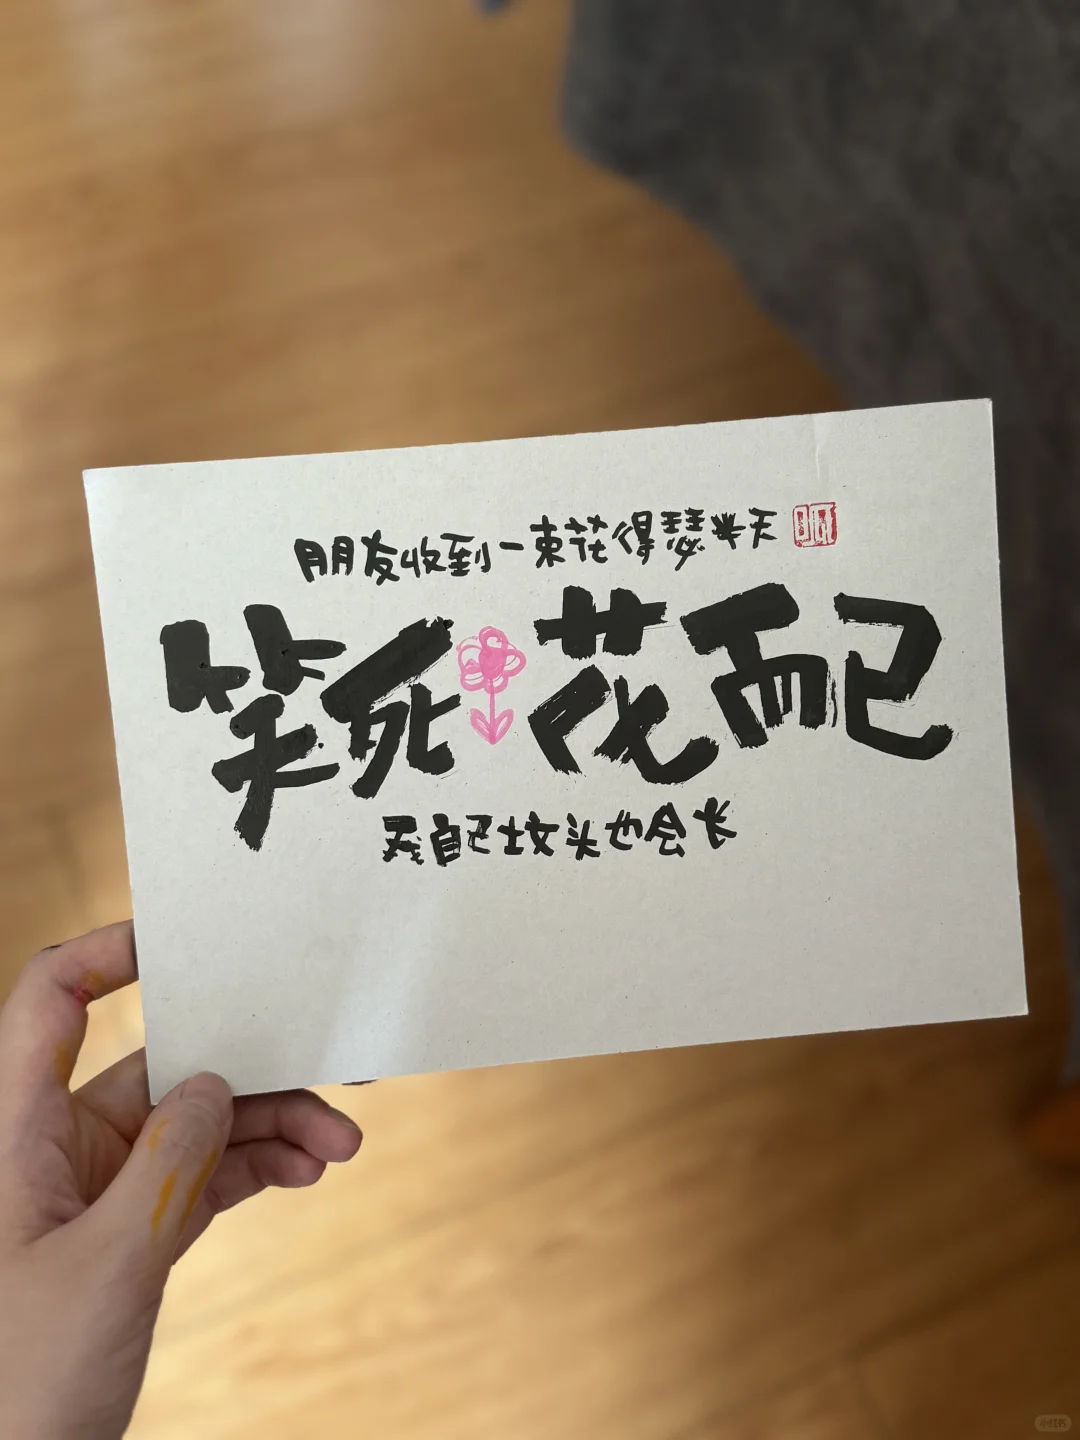 朋友收到一束花得瑟半天
笑死花而已
我自己坟头也会长
小红书